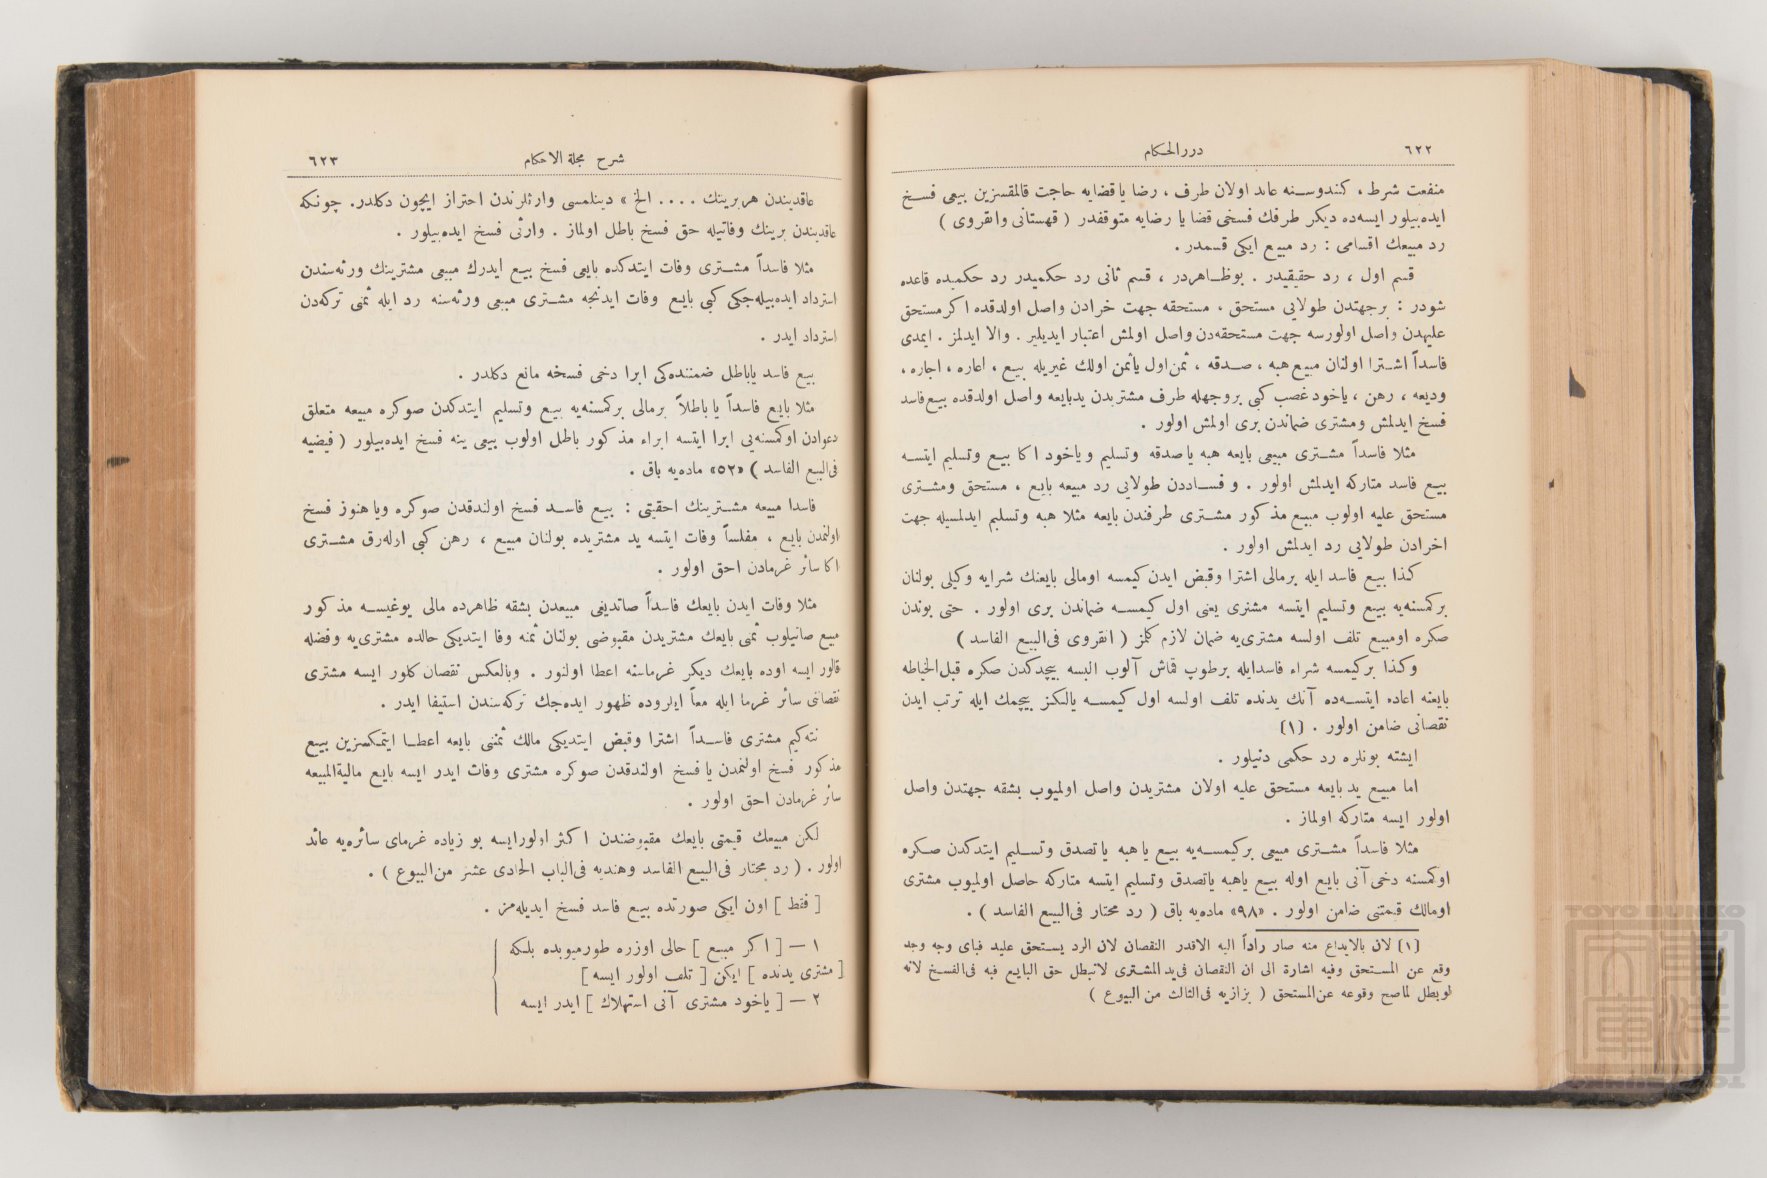 ٦٢٢
دررالحكام
منفعت شرط ، كندوسنه عايد اولان طرف ، رضا ياقضايه حاجت قالمقسزين بيعى فسخ
ايده‌بيلور ايسه‌ده ديكر طرفك فسخى قضا يا رضايه متوقفدر ( قهستانى وانقروى )
رد مبيعك اقسامى : رد مبيع ايكى قسمدر .
قسم اول ، رد حقيقيدر . بوظاهردر ، قسم ثانى رد حكميدر رد حكميده قاعده
شودر : برجهتدن طولايى مستحق ، مستحقه جهت خرادن واصل اولدقده اكر مستحق
عليهدن واصل اولورسه جهت مستحقه‌دن واصل اولمش اعتبار ايديلير . والا ايدلمز . ايمدى
فاسداً اشترا اولنان مبيع هبه ، صدقه ، ثمن اول يا‌ثمن اولك غيريله بيع ، اعاره ، اجاره ،
وديعه ، رهن ، ياخود غصب كبى بروجهله طرف مشتريدن يدبايعه واصل اولدقده بيع فاسد
فسخ ايدلمش ومشترى ضماندن برى اولمش اولور .
مثلا فاسداً مشترى مبيعى بايعه هبه ياصدقه وتسليم وياخود اكا بيع وتسليم ايتسه
بيع فاسد متاركه ايدلمش اولور . و فساددن طولايى رد مبيعه بايع ، مستحق ومشترى
مستحق عليه اولوب مبيع مذكور مشترى طرفندن بايعه مثلا هبه وتسليم ايدلمسيله جهت
اخرادن طولايى رد ايدلمش اولور .
كذا بيع فاسد ايله برمالى اشترا وقبض ايدن كيمسه اومالى بايعنك شرايه وكيلى بولنان
بركمسنه‌يه بيع وتسليم ايتسه مشترى يعنى اول كيمسه ضماندن برى اولور . حتى بوندن
صكره اومبيع تلف اولسه مشترى‌يه ضمان لازم كلمز ( انقروى فى‌البيع الفاسد )
وكذا بركيمسه شراء فاسدايله برطوپ قماش آلوب البسه بيچدكدن صكره قبل‌الخياطه
بايعنه اعاده ايتسه‌ده آنك يدنده تلف اولسه اول كيمسه يالكز بيچمك ايله ترتب ايدن
نقصانى ضامن اولور . (١)
ايشته بونلره رد حكمى دنيلور .
اما مبيع يد بايعه مستحق عليه اولان مشتريدن واصل اولميوب بشقه جهتدن واصل
اولور ايسه متاركه اولماز .
مثلا فاسداً مشترى مبيعى بركيمسه‌يه بيع ياهبه ياتصدق وتسليم ايتدكدن صكره
اوكمسنه دخى آنى بايع اوله بيع ياهبه ياتصدق وتسليم ايتسه متاركه حاصل اولميوب مشترى
اومالك قيمتنى ضامن اولور . «٩٨» ماده‌يه باق ( رد محتار فى‌البيع الفاسد ) .
(١) لان بالايداع منه صار راداً اليه الاقدر النقصان لان الرد يستحق عليه فباى وجه وجد
وقع عن المستحق وفيه اشارة الى ان النقصان فى‌يد المشترى لاتبطل حق البايع فيه فى‌الفسخ لانه
لوبطل لماصح وقوعه عن‌المستحق ( بزازيه فى‌الثالث من البيوع )
شرح مجلة الاحكام
٦٢٣
عاقديندن هربرينك .... الخ » دينلمسى وارثلرندن احتراز ايچون دكلدر. چونكه
عاقديندن برينك وفاتيله حق فسخ باطل اولماز . وارثى فسخ ايده‌بيلور .
مثلا فاسداً مشترى وفات ايتدكده بايعى فسخ بيع ايدرك مبيعى مشترينك ورثه‌سندن
استرداد ايده‌بيله‌جكى كبى بايع وفات ايدنجه مشترى مبيعى ورثه‌سنه رد ايله ثمنى تركه‌دن
استرداد ايدر .
بيع فاسد ياباطل ضمننده‌كى ابرا دخى فسخه مانع دكلدر .
مثلا بايع فاسداً ياباطلاً برمالى بركمسنه‌يه بيع وتسليم ايتدكدن صوكره مبيعه متعلق
دعوادن اوكمسنه‌يى ابرا ايتسه ابراء مذكور باطل اولوب بيعى ينه فسخ ايده‌بيلور ( فيضيه
فى‌البيع الفاسد ) «٥٢» ماده‌يه باق .
فاسدا مبيعه مشترينك احقيتى : بيع فاسد فسخ اولندقدن صوكره ويا هنوز فسخ
اولنمدن بايع ، مفلساً وفات ايتسه يد مشتريده بولنان مبيع ، رهن كبى اوله‌رق مشترى
اكا سائر غرمادن احق اولور .
مثلا وفات ايدن بايعك فاسداً صاتديغى مبيعدن بشقه ظاهرده مالى يوغيسه مذكور
مبيع صاتيلوب ثمنى بايعك مشتريدن مقبوضى بولنان ثمنه وفا ايتديكى حالده مشترى‌يه وفضله
قالور ايسه اوده بايعك ديكر غرماسنه اعطا اولنور . وبالعكس نقصان كلور ايسه مشترى
نقصانى سائر غرما ايله معاً ايلروده ظهور ايده‌جك تركه‌سندن استيفا ايدر .
نته‌كيم مشترى فاسداً اشترا وقبض ايتديكى مالك ثمننى بايعه اعطا ايتمكسزين بيع
مذكور فسخ اولنمدن يا فسخ اولندقدن صوكره مشترى وفات ايدر ايسه بايع مالية‌المبيعه
سائر غرمادن احق اولور .
لكن مبيعك قيمتى بايعك مقبوضندن اكثر اولورايسه بو زياده غرماى سائره‌يه عائد
اولور . ( رد محتار فى‌البيع الفاسد وهنديه فى‌الباب الحادى عشر من‌البيوع ) .
[ فقط ] اون ايكى صورتده بيع فاسد فسخ ايديله‌مز .
١ — [ اكر مبيع ] حالى اوزره طورميوبده بلكه
[ مشترى يدنده ] ايكن [ تلف اولور ايسه ]
٢ — [ ياخود مشترى آنى استهلاك ] ايدر ايسه
TOYO BUNKO
東洋文庫